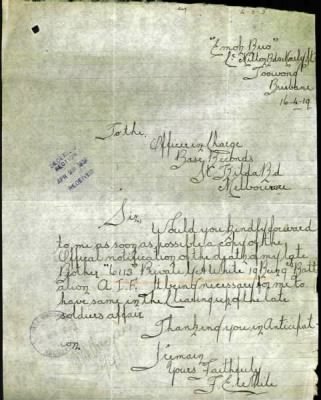 "Emoh Ruo"
Toowong
Brisbane
16-4-19
To the,
Officer in Charge
Base Records
St. Kilda Rd
Melbourne
Sir,
Would you kindly forward
to me as soon as possible a copy of the
Official notification of the death of my late
brother "6113" Private
A.I.F. It being necessary for me to
have same in the clearing up of the late
soldiers affair
Thanking you in Anticipat
ion.
I remain
Yours Faithfully
RECEIVED